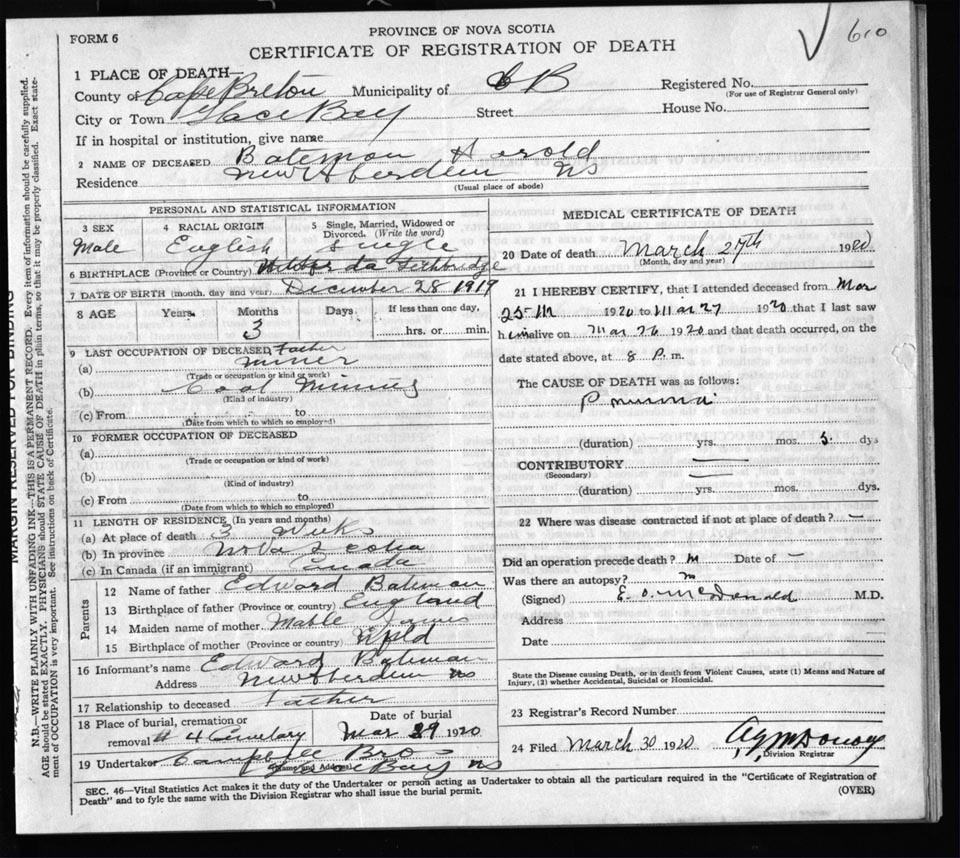 610
FORM 6
PROVINCE OF NOVA SCOTIA
CERTIFICATE OF REGISTRATION OF DEATH
1 PLACE OF DEATH—
County of Cape Breton Municipality of C B Registered No.
(For use of Registrar General only)
City or Town Glace Bay Street House No.
If in hospital or institution, give name
2 NAME OF DECEASED Bateman Harold
Residence New Aberdeen NS
(Usual place of abode)
PERSONAL AND STATISTICAL INFORMATION
3 SEX 4 RACIAL ORIGIN 5 Single, Married, Widowed or Divorced. (Write the word)
Male English Single
6 BIRTHPLACE (Province or Country) Lethbridge
7 DATE OF BIRTH (month, day and year) December 28 1919
8 AGE Years Months Days If less than one day,
3 hrs. or min.
9 LAST OCCUPATION OF DECEASED Father
(a) miner
(Trade or occupation or kind of work)
(b) Coal Mining
(Kind of industry)
(c) From to
(Date from which to which so employed)
10 FORMER OCCUPATION OF DECEASED
(a)
(Trade or occupation or kind of work)
(b)
(Kind of industry)
(c) From to
(Date from which to which so employed)
11 LENGTH OF RESIDENCE (In years and months)
(a) At place of death 3 weeks
(b) In province Nova Scotia
(c) In Canada (if an immigrant) Canada
Parents
12 Name of father Edward Bateman
13 Birthplace of father (Province or country) England
14 Maiden name of mother Mable
15 Birthplace of mother (Province or country) Nfld
16 Informant's name Edward Bateman
Address New Aberdeen NS
17 Relationship to deceased Father
18 Place of burial, cremation or removal # 4 Cemetery Date of burial Mar 29 1920
19 Undertaker Campbell Bros
(Name and address)
Glace Bay NS
MEDICAL CERTIFICATE OF DEATH
20 Date of death March 27th 1920
(Month, day and year)
21 I HEREBY CERTIFY, that I attended deceased from Mar
25th 1920 to Mar 27 1920 that I last saw
him alive on Mar 26 1920 and that death occurred, on the
date stated above, at 8 P. m.
The CAUSE OF DEATH was as follows:
(duration) yrs. mos. 3 dys
CONTRIBUTORY
(Secondary)
(duration) yrs. mos. dys.
22 Where was disease contracted if not at place of death? —
Did an operation precede death? Date of —
Was there an autopsy?
(Signed) E. O. McDonald M.D.
Address
Date
State the Disease causing Death, or in death from Violent Causes, state (1) Means and Nature of
Injury, (2) whether Accidental, Suicidal or Homicidal.
23 Registrar's Record Number
24 Filed March 30 1920
Division Registrar
SEC. 46—Vital Statistics Act makes it the duty of the Undertaker or person acting as Undertaker to obtain all the particulars required in the "Certificate of Registration of
Death" and to fyle the same with the Division Registrar who shall issue the burial permit.
(OVER)
MARGIN RESERVED FOR BINDING
N.B.—WRITE PLAINLY WITH UNFADING INK—THIS IS A PERMANENT RECORD. Every item of information should be carefully supplied.
AGE should be stated EXACTLY. PHYSICIANS should STATE CAUSE OF DEATH in plain terms, so that it may be properly classified. Exact state-
ment of OCCUPATION is very important. See instructions on back of Certificate.